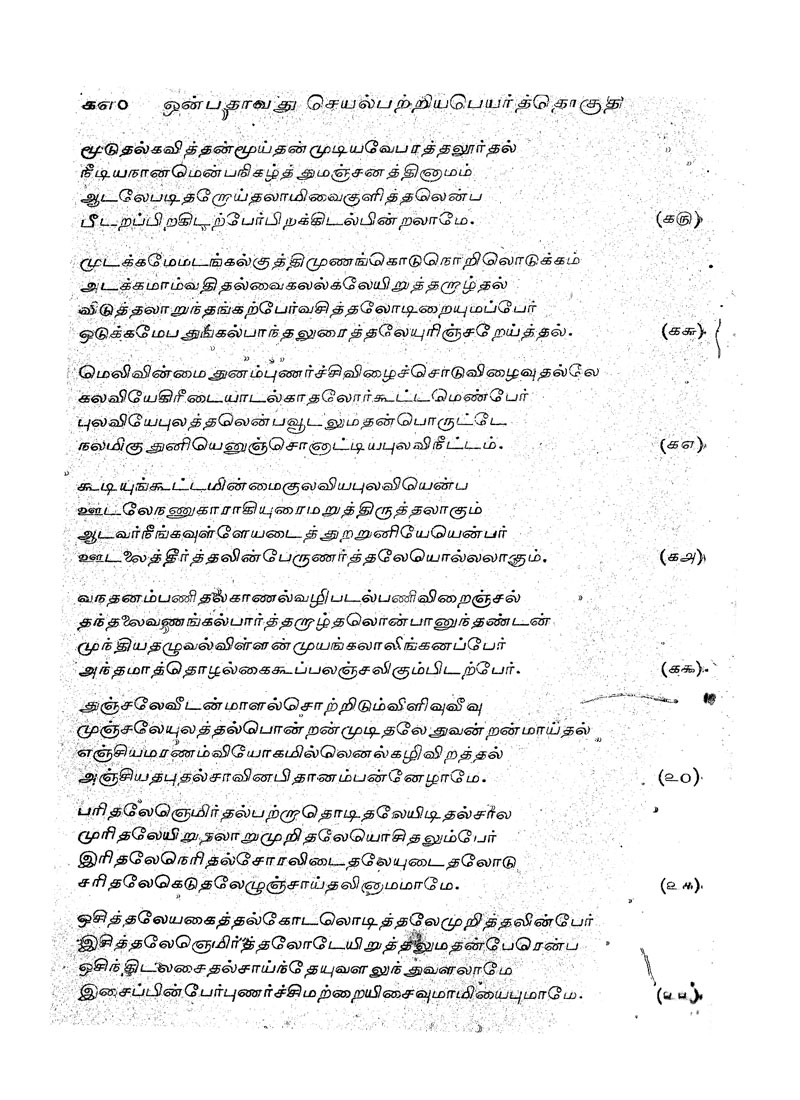 க௭௦ ஒன்பதாவது செயல்பற்றியபெயர்த்தொகுதி
மூடுதல்கவித்தன்மூய்தன்முடியவேபரத்தலூர்தல்
நீடியநானமென்பநிகழ்த்துமஞ்சனத்தினாமம்
ஆடலேபடிதறோய்தலாமிவைகுளித்தலென்ப
பீடறப்பிறகிடற்பேர்பிறக்கிடல்பின்றலாமே. (க௫)
முடக்கமேமடங்கல்குத்திமுணங்கொடுநொறிலொடுக்கம்
அடக்கமாம்வதிதல்வைகலல்கலேயிறுத்தரூழ்தல்
விடுத்தலாறுந்தங்கற்பேர்வசித்தலோடிறையுமப்பேர்
ஒடுக்கமேபதுங்கல்பாந்தலுரைத்தலேயுரிஞ்சறேய்த்தல். (க௬)
மெலிவின்மைதுனம்புணர்ச்சிவிழைச்சொடுவிழைவுதல்லே
கலவியேகிரீடையாடல்காதலோர்கூட்டமெண்பேர்
புலவியேபுலத்தலென்பவூடலுமதன்பொருட்டே
நலமிகுதுனியெனுஞ்சொனாட்டியபுலவிநீட்டம். (க௭)
கூடியுங்கூட்டமின்மைகுலவியபுலவியென்ப
ஊடலேநணுகாராகியுரைமறுத்திருத்தலாகும்
ஆடவர்நீங்கவுள்ளேயடைத்துறறுனியேயென்பர்
ஊடலைத்தீர்த்தலின்பேருணர்த்தலேயொல்லலாகும். (க௮)
வந்தனம்பணிதல்காணல்வழிபடல்பணிவிறைஞ்சல்
தந்தலைவணங்கல்பார்த்தரூழ்தலொன்பானுந்தண்டன்
முந்தியதழுவல்விள்ளன்முயங்கலாலிங்கனப்பேர்
அந்தமாத்தொழல்கைகூப்பலஞ்சலிகும்பிடற்பேர். (க௯)
துஞ்சலேவீடன்மாளல்சொற்றிடும்விளிவுவீவு
முஞ்சலேயுலத்தல்பொன்றன்முடிதலேதுவன்றன்மாய்தல்
எஞ்சியமரணம்வியோகமில்லெனல்கழிவிறத்தல்
அஞ்சியதபுதல்சாவினபிதானம்பன்னேழாமே. (௨௦)
பரிதலேஞெமிர்தல்பற்றாதொடிதலேயிடிதல்சரல
முரிதலேயிறுதலாறுமுறிதலேயொசிதலும்பேர்
இரிதலேநெரிதல்சோரலிடைதலேயுடைதலோடு
சரிதலேகெடுதலேழுஞ்சாய்தலினாமமாமே. (௨௧)
ஒசித்தலேயகைத்தல்கோடலொடித்தலேமுறித்தலின்பேர்
இசித்தலேஞெமிர்த்தலோடேயிறுத்தலுமதன்பேரென்ப
ஒசிந்திடலசைதல்சாய்ந்தேயுவளலுந்துவளலாமே
இசைப்பின்பேர்புணர்ச்சிமற்றையிசைவுமாமியைபுமாமே. (௨௨)